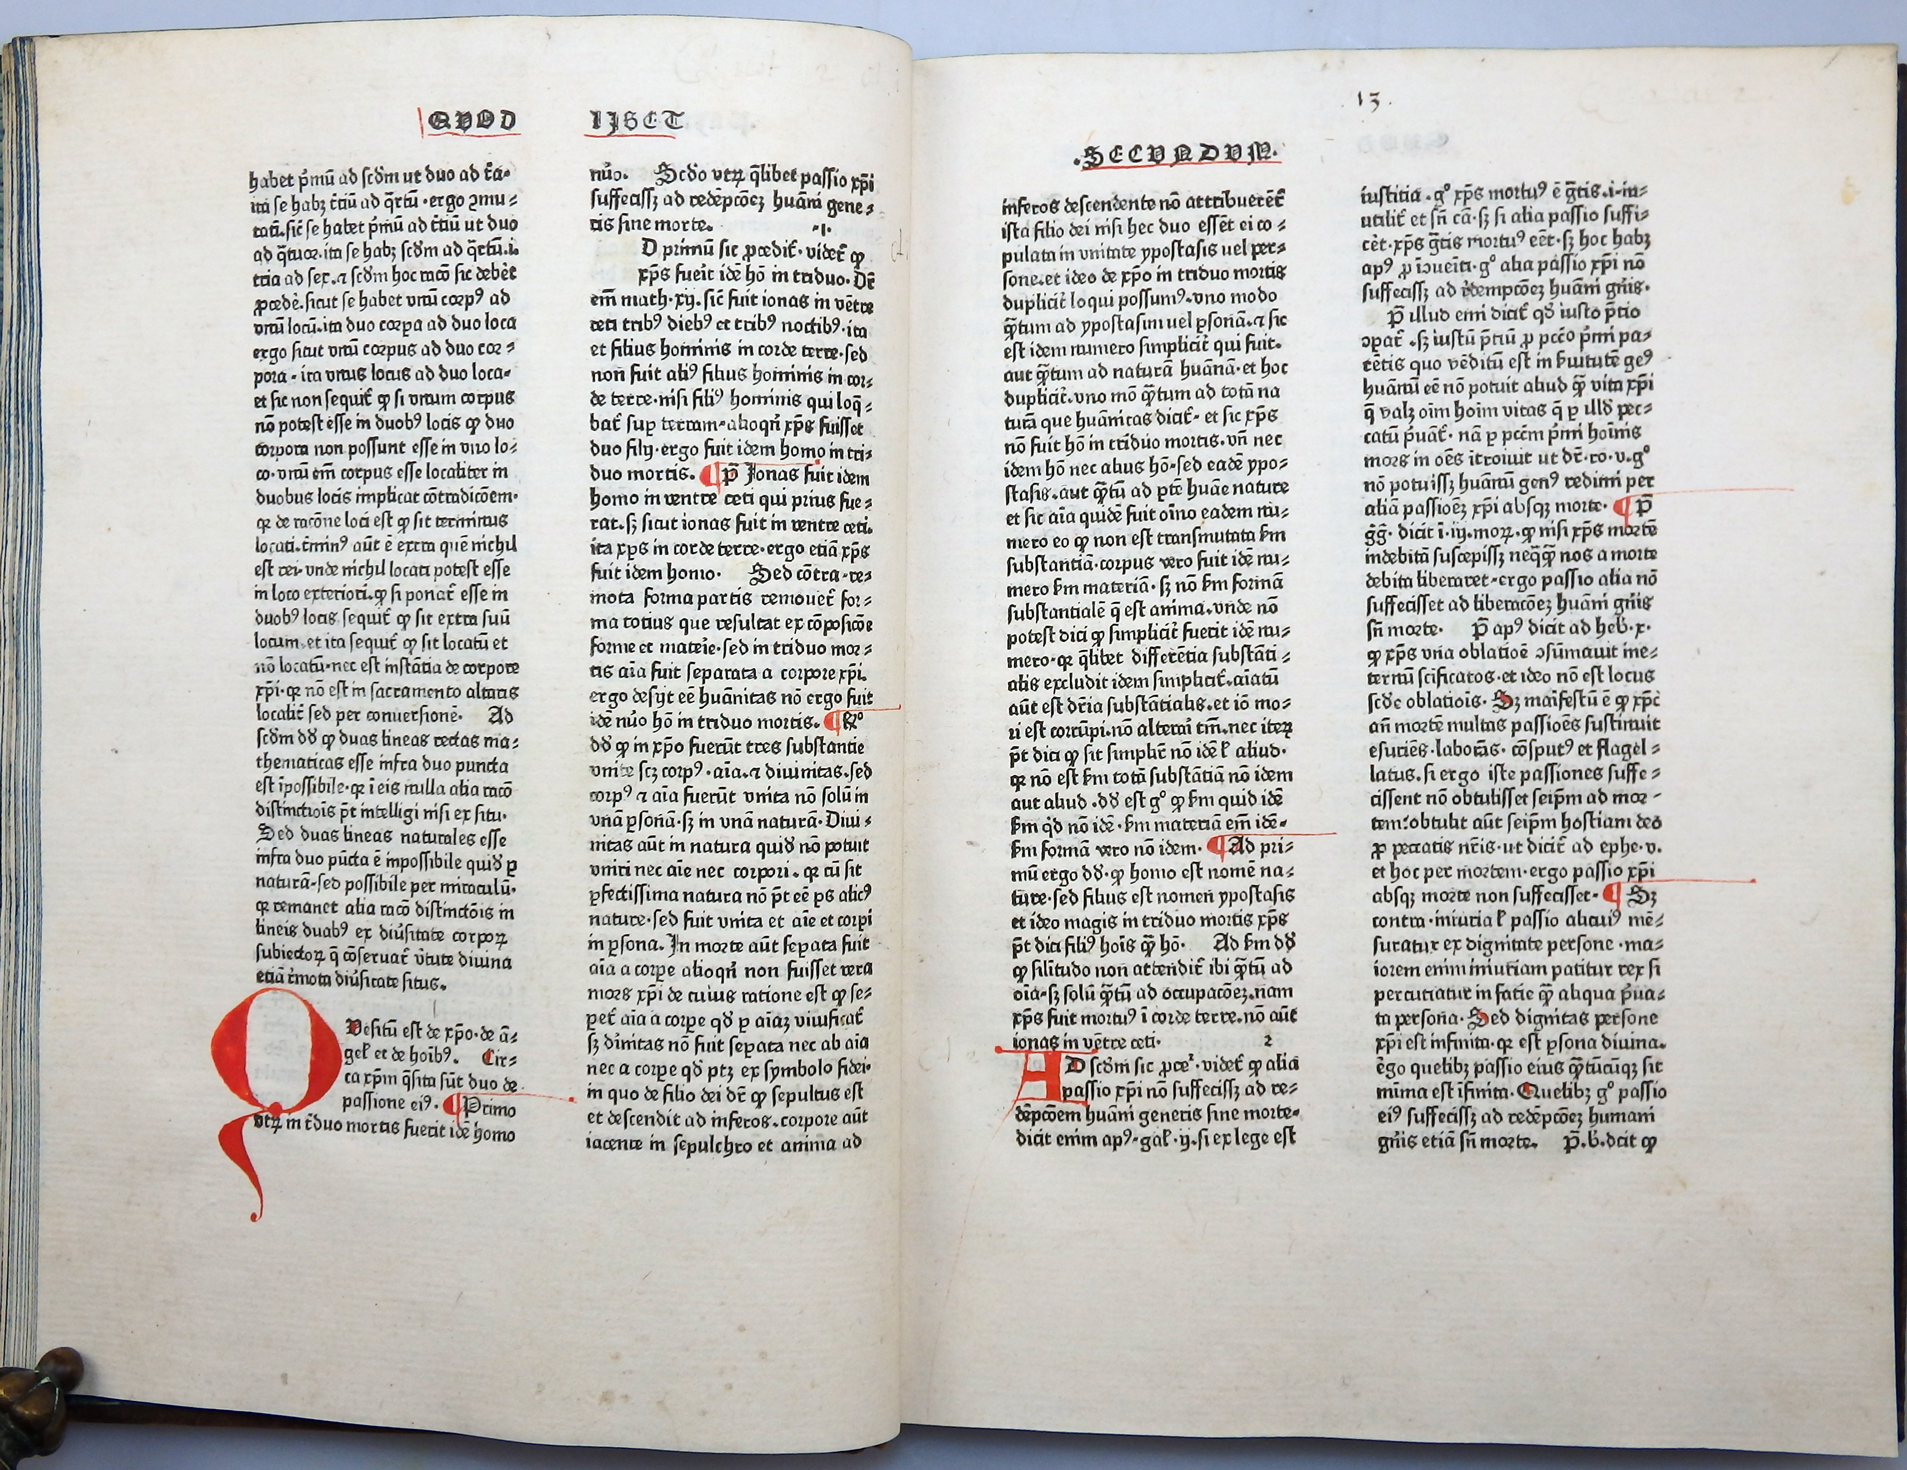 QVOD LIBET
habet p̄mū ad scd̄m ut duo ad t̄a-
ita se habꝫ t̄tiū ad q̄rtū · ergo ꝯmu-
tatī. sic̄ se habet p̄mū ad t̄tiū ut duo
ad q̄tuor. ita se habꝫ scd̄m ad q̄rtū. i.
tria ad sex. ⁊ scd̄m hoc racō sic debēt
ꝓcedē. sicut se habet vnū corpꝰ ad
vnū locū. ita duo corpa ad duo loca
ergo sicut vnū corpus ad duo cor-
pora - ita vnus locus ad duo loca-
et sic non sequit̄ ꝙ si vnum corpus
nō potest esse in duobꝰ locis ꝙ duo
corpora non possunt esse in vno lo-
co · vnū em̄ corpus esse localiter in
duobus locis implicat cōtradicōem ·
qr̄ de racōne loci est ꝙ sit terminus
locati. t̄minꝰ aūt ē extra quē nichil
est rei · vnde nichil locati potest esse
in loco exteriori. ꝙ si ponat̄ esse in
duobꝰ locis sequit̄ ꝙ sit extra suū
locum. et ita sequit̄ ꝙ sit locatū et
nō locatū · nec est instātia de corpore
xp̄i · qr̄ nō est in sacramento altaris
localit̄ sed per conuersionē · Ad
scd̄m dd̄ ꝙ duas lineas rectas ma-
thematicas esse infra duo puncta
est īpossibile · qr̄ ī eis nulla alia racō
distinctiōis pt̄ intelligi nisi ex situ ·
Sed duas lineas naturales esse
infra duo pūcta ē impossibile quid̄ ꝑ
naturā - sed possibile per miraculū ·
qr̄ remanet alia racō distinctōis in
lineis duabꝰ ex diūsitate corpoꝝ
subiectoꝝ q̄ cōseruat̄ v̄tute diuina
etiā r̄mota diūsificate situs.
QVesitū est de xp̄o · de ā-
gel̄ et de hoībꝰ. Cir-
ca xp̄m q̄sita sūt duo de
passione eiꝰ. ¶ Primo
vtꝝ in t̄duo mortis fuerit idē homo
nūo. Scd̄o vtꝝ q̄libet passio xp̄i
suffecissꝫ ad redēpcōeꝫ huāni gene-
ris sine morte. ·1·
D primū sic ꝓcedit̄ · videt̄ ꝙ
xp̄s fuerit idē hō in triduo · Dr̄
em̄ math · xij. sic̄ fuit ionas in vētre
ceti tribꝰ diebꝰ et tribꝰ noctibꝰ · ita
et filius hominis in corde terre · sed
non fuit aliꝰ filius hominis in cor-
de terre · nisi filiꝰ hominis qui loq̄-
bat̄ sup terram - alioqn̄ xp̄s fuisset
duo filij · ergo fuit idem homo in tri-
duo mortis. ¶ p̄ Jonas fuit idem
homo in ventre ceti qui prius fue-
rat. sꝫ sicut ionas fuit in ventre ceti.
ita xp̄s in corde terre · ergo etiā xp̄s
fuit idem homo · Sed cōtra - re-
mota forma partis remouet̄ for-
ma totius que resultat ex cōposicōe
forme et materie · sed in triduo mor-
tis aīa fuit separata a corpore xp̄i.
ergo desijt eē huānitas nō ergo fuit
idē nūo hō in triduo mortis. ¶ Rº
dd̄ ꝙ in xp̄o fuerūt tres substantie
vnite scꝫ corpꝰ · aīa. ⁊ diuinitas. sed
corpꝰ ⁊ aīa fuerūt vnita nō solū in
vnā ꝑsonā · sꝫ in vnā naturā · Diui-
nitas aūt in natura quid̄ nō potuit
vniri nec aīe nec corpori. qr̄ cū sit
ꝑfectissima natura nō pt̄ eē ꝑs alicꝰ
nature · sed fuit vnita et aīe et corpī
in ꝑsona. In morte aūt seꝑata fuit
aīa a corpe alioqn̄ non fuisset vera
mors xp̄i de cuius ratione est ꝙ se-
pet̄ aīa a corpe qd̄ ꝑ aīaꝫ viuificat̄
sꝫ diīnitas nō fuit seꝑata nec ab aīa
nec a corpe qd̄ ptꝫ ex symbolo fidei ·
in quo de filio dei dr̄ ꝙ sepultus est
et descendit ad inferos. corpore aūt
iacente in sepulchro et anima ad
13.
·SECVNDVM·
inferos descendente nō attribuerēt̄
ista filio dei nisi hec duo essēt ei co-
pulata in vnitate ypostasis uel per-
sone. et ideo de xp̄o in triduo mortis
duplicit̄ loqui possumꝰ. vno modo
q̄tum ad ypostasim uel ꝑsonā. ⁊ sic
est idem numero simplicit̄ qui fuit.
aut q̄tum ad naturā huānā · et hoc
duplicit̄. vno mō q̄tum ad totā na
turā que huānitas dicit̄ - et sic xp̄s
nō fuit hō in triduo mortis. vn̄ nec
idem hō nec alius hō - sed eadē ypo-
stasis. aut q̄tū ad ptē huāe nature
et sic aīa quidē fuit oīno eadem nu-
mero eo ꝙ non est transmutata ẜm
substantiā. corpus vero fuit idē nu-
mero ẜm materiā · sꝫ nō ẜm formā
substantialē q̄ est anima. vnde nō
potest dici ꝙ simplicit̄ fuerit idē nu-
mero · qr̄ q̄libet differētia substāti-
alis excludit idem simplicit̄. aīatū
aūt est dr̄ia substātialis. et iō mo-
ri est corrūpi. nō alterari tm̄. nec iteꝝ
pt̄ dici ꝙ sit simplr̄ nō idē l̄ aliud ·
qr̄ nō est ẜm totā substātiā nō idem
aut aliud. dd̄ est gº ꝙ ẜm quid idē
ẜm qd̄ nō idē · ẜm materiā em̄ idē -
ẜm formā vero nō idem. ¶ Ad pri-
mū ergo dd̄ · ꝙ homo est nomē na-
ture · sed filius est nomen ypostasis
et ideo magis in triduo mortis xp̄s
pt̄ dici filiꝰ hoīs q̄ hō · Ad ẜm dd̄
ꝙ silītudo non attendit̄ ibi q̄tū ad
oīa - sꝫ solū q̄tū ad occupacōeꝫ. nam
xp̄s fuit mortuꝰ ī corde terre. nō aūt
ionas in vētre ceti. 2
AD scd̄m sic ꝓce². videt̄ ꝙ alia
passio xp̄i nō suffecissꝫ ad re-
dēpcōem huāni generis sine morte.
dicit enim apꝰ - gal̄ · ij. si ex lege est
iusticia. gº xp̄s mortuꝰ ē gr̄tis. i · in-
utilit̄ et sn̄ cā · sꝫ si alia passio suffi-
cēt · xp̄s gr̄tis mortuꝰ eēt · sꝫ hoc habꝫ
apꝰ ꝓ īꝯueniēti · gº alia passio xp̄i nō
suffecissꝫ ad redempcōeꝫ huāni gn̄is.
P̄ illud em̄ dicit̄ qd̄ iusto p̄cio
ꝯpat̄. sꝫ iustū p̄tiū ꝓ pcc̄o p̄mi pa-
rētis quo vēditū est in ẜuitutē genꝰ
huānū eē nō potuit aliud q̄ vita xp̄i
q̄ valꝫ oīm hoīm vitas q̄ ꝑ illd̄ pec-
catū p̄uāt̄ · nā ꝑ pccm̄ p̄mi hoīnis
mors in oēs ītroiuit ut dr̄ · ro. v. gº
nō potuissꝫ huānū genꝰ redimi per
aliā passiōeꝫ xp̄i absqꝫ morte. ¶ P̄
gḡ. dicit ī. iij. moꝝ. ꝙ nisi xp̄s mortē
indebitā suscepissꝫ neq̄q̄ nos a morte
debita liberaret - ergo passio alia nō
suffecisset ad liberacōeꝫ huāni gn̄is
sn̄ morte. P̄ apꝰ dicit ad heb. x.
ꝙ xp̄s vna oblatiōe ꝯsūmauit ine-
ternū scificatos. et ideo nō est locus
scd̄e oblatiois. Sꝫ māifestū ē ꝙ xp̄c
an̄ mortē multas passiōes sustinuit
esuriēs. laborās. cōsputꝰ et flagel-
latus. si ergo iste passiones suffe-
cissent nō obtulisset seip̄m ad mor-
tem: obtulit aūt seip̄m hostiam deo
ꝓ peccatis nr̄is · ut dicit̄ ad ephe. v.
et hoc per mortem · ergo passio xp̄i
absqꝫ morte non suffecisset. ¶ Sꝫ
contra · iniuria l̄ passio alicuiꝰ mē-
suratur ex dignitate persone · ma-
iorem enim iniuriam patitur rex si
percutiatur in facie q̄ aliqua p̄ua-
ta persona. Sed dignitas persone
xp̄i est infinita. qr̄ est ꝑsona diuina.
ergo quelibꝫ passio eius q̄tūcūqꝫ sit
minima est īfinita. Quelibꝫ gº passio
eiꝰ suffecissꝫ ad redēpcōeꝫ humani
gn̄is etiā sn̄ morte. P̄. b. dicit ꝙ